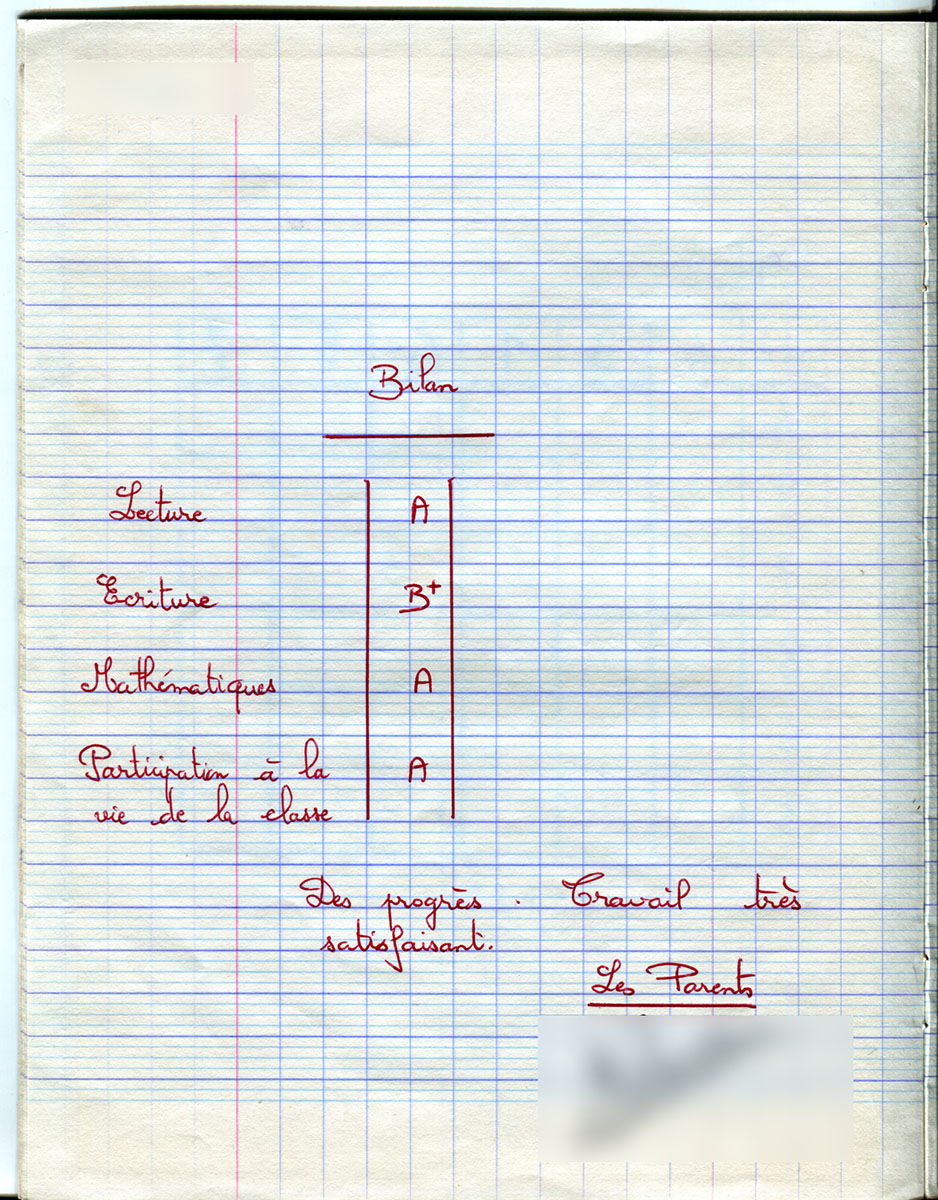 Bilan
Lecture A
Ecriture B+
Mathématiques A
Participation à la A
vie de la classe
Des progrès. Travail très
satisfaisant.
Les Parents